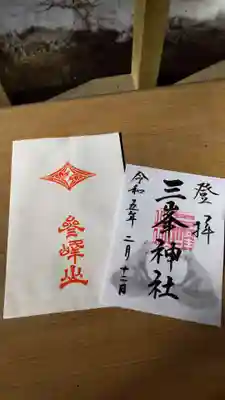 登拝
三峯神社
令和五年 二月十一日
參峰山